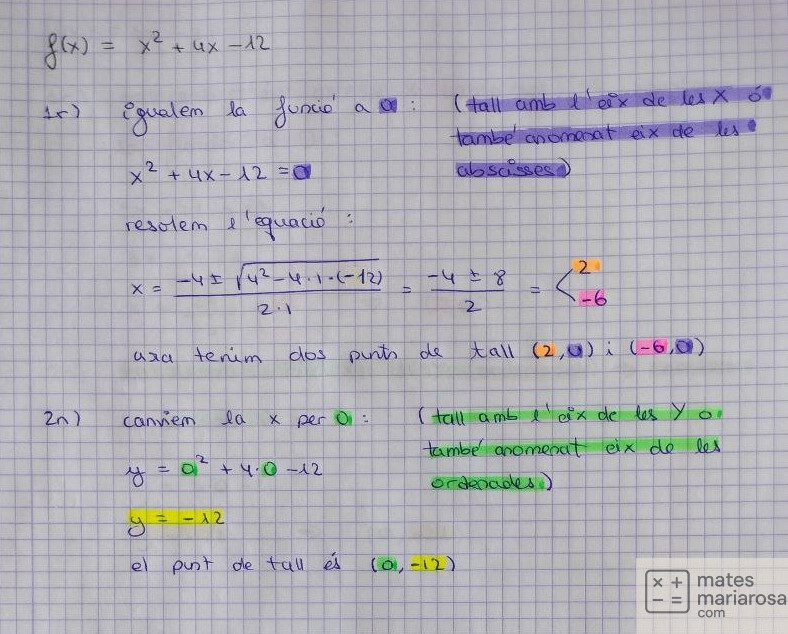 f(x) = x² + 4x - 12
1r) igualem la funció a 0 : (tall amb l'eix de les X o
també anomenat eix de les
x² + 4x - 12 = 0 abscisses)
resolem l'equació :
x = (-4 ± √(4² - 4·1·(-12))) / (2·1) = (-4 ± 8) / 2 = < 2
-6
ara tenim dos punts de tall (2,0) i (-6,0)
2n) canviem la x per 0 : (tall amb l'eix de les Y o
també anomenat eix de les
y = 0² + 4·0 - 12 ordenades)
y = -12
el punt de tall és (0,-12)
mates
mariarosa
com